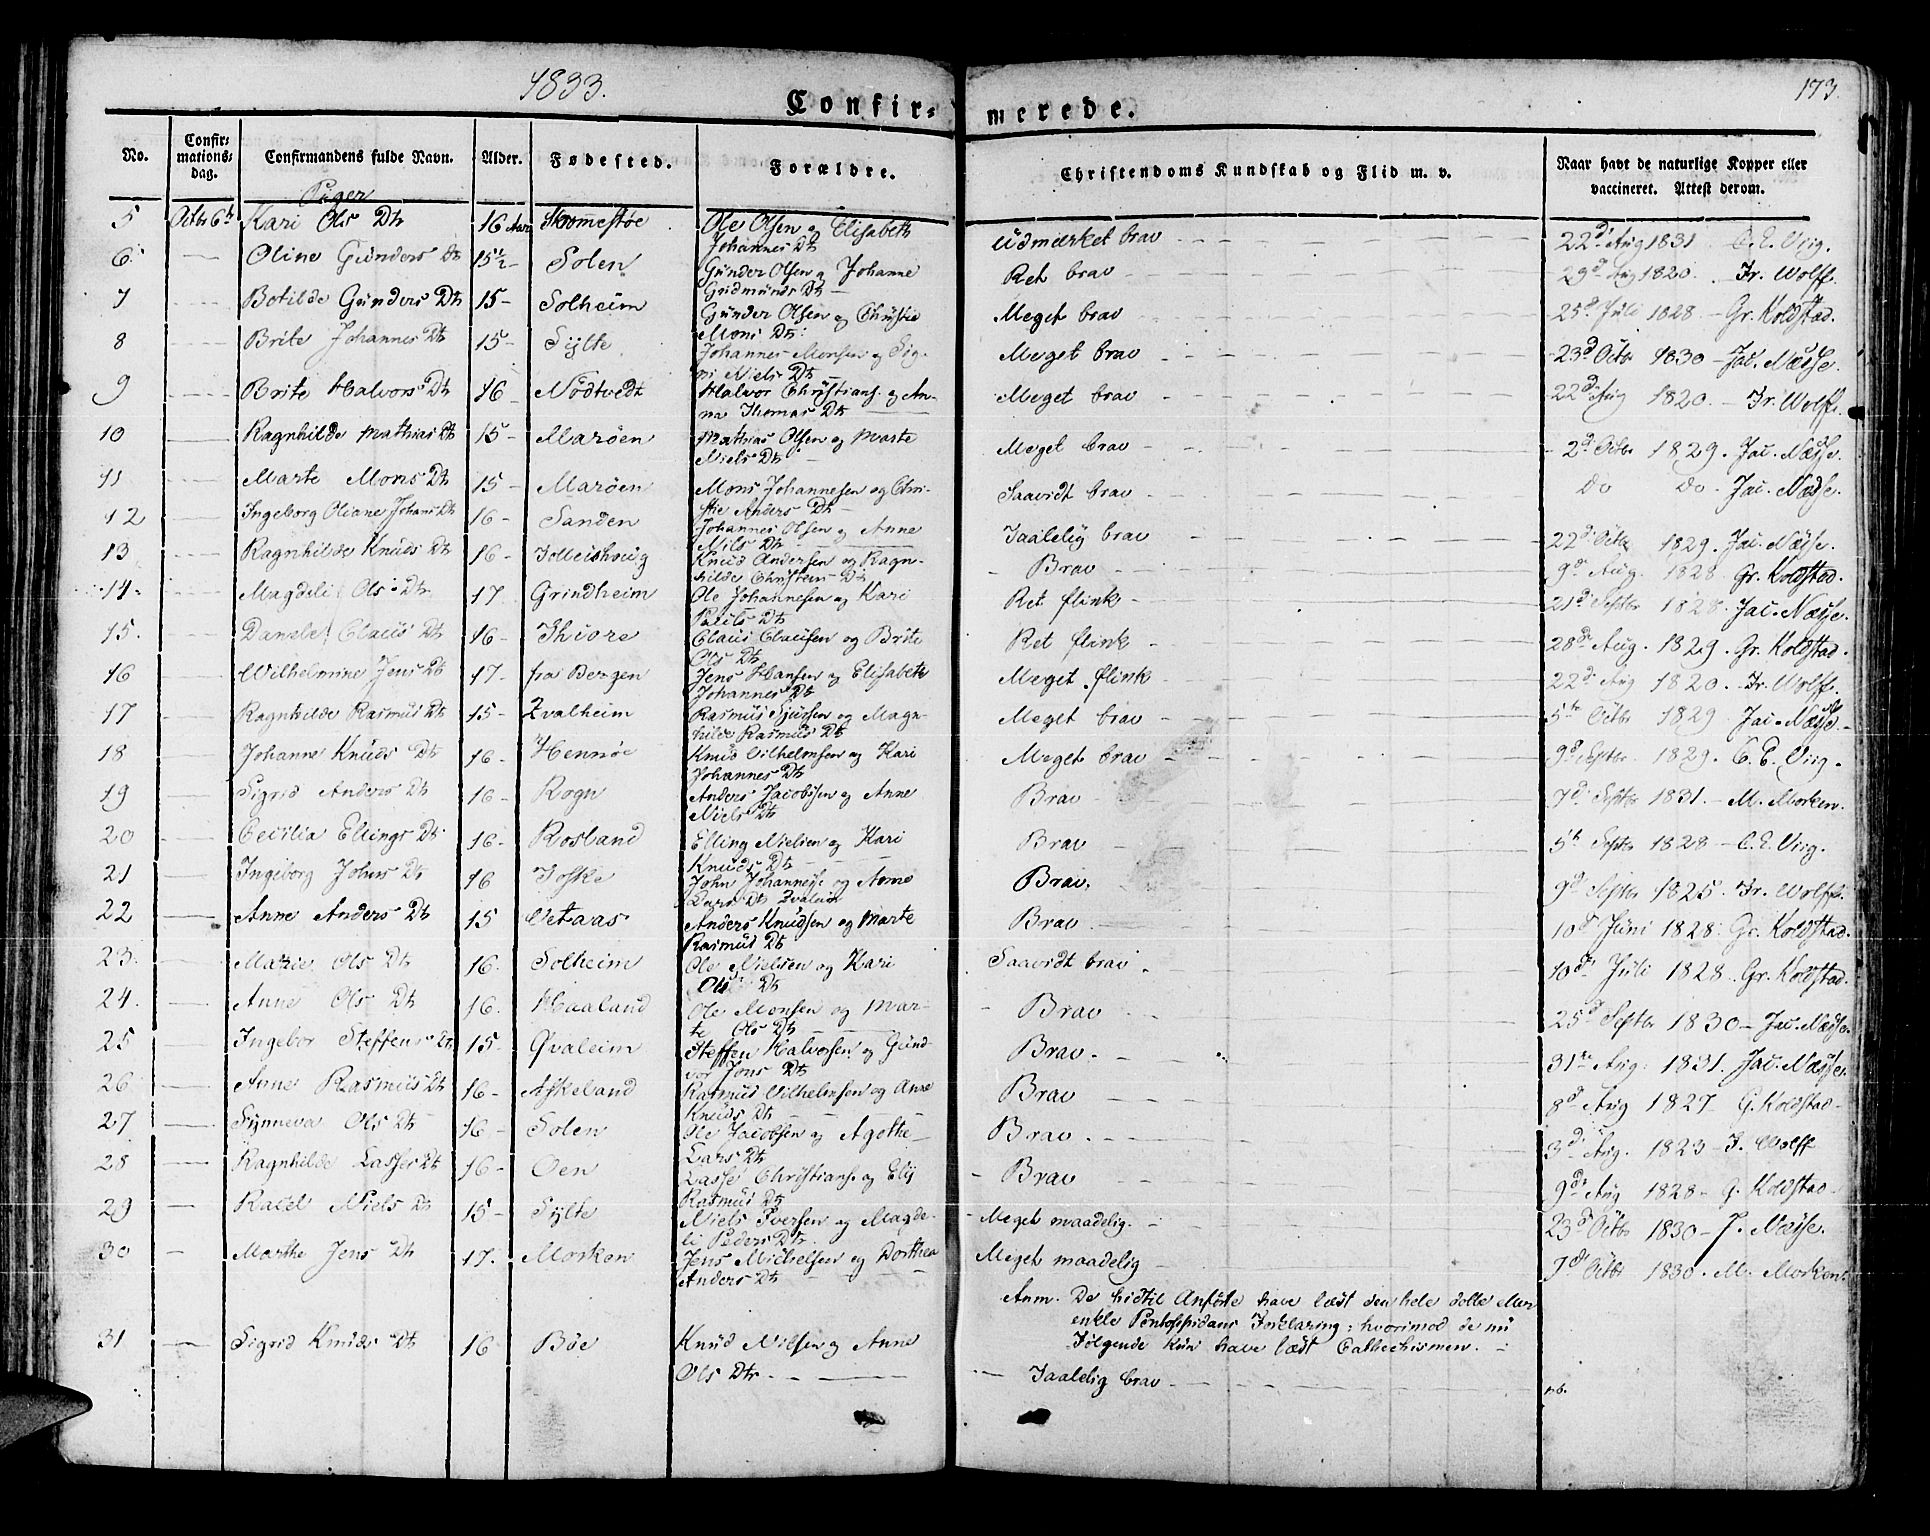 1833.
173.
Confir- merede.
No.
Confir-
mations-
dag.
Confirmandens fulde Navn.
Alder.
Fødested.
Forældre.
Christendoms Kundskab og Flid m. v.
Naar havt de naturlige Kopper eller
vaccineret. Attest derom.
Piger
5 Octbr 6te Kari Ols Dtr 16 Aar Ole Olsen og Elisabeth Johannes Dtr Udmærket brav 22d Aug 1831 C. E.
6 Oline Gunders Dtr 15½ Solen Gunder Olsen og Johanne Gudmunds Dtr Ret brav 29d Aug 1820. Fr. Wolff.
7 Botilde Gunders Dtr 15 Solheim Gunder Olsen og Christie Mons Dtr Meget brav 25d Juli 1828 Gr. Koldstad.
8 Brite Johannes Dtr 15 Sylte Johannes Monsen og Signi Niels Dtr Meget brav 23d Octbr 1830 Jac. Næsse.
9 Brite Halvors Dtr 16 Nödtvedt Halvor Christians. og Anna Thomas Dtr Meget brav 22d Aug 1820. Fr. Wolff.
10 Ragnhilde Mathias Dtr 15 Maröen Mathias Olsen og Marte Niels Dtr Meget brav 2d Octbr 1829. Jac. Næsse.
11 Marte Mons Dtr 15 Maröen Mons Johannesen og Christie Anders Dtr Saavidt brav Do Do. Jac. Næsse.
12 Ingeborg Oliane Johans Dtr 16 Sanden Johannes Olsen og Anne Nils Dtr Taalelig brav 22d Octbr 1829. Jac. Næsse.
13 Ragnhilde Knuds Dtr 16 Knud Andersen og Ragnhilde Christens Dtr Brav 9d Aug. 1828. Gr. Koldstad.
14. Magdeli Ols Dtr. 17 Grindheim Ole Johannesen og Kari Pauls Dtr Ret flink 21d Septbr 1828. Jac. Næsse.
15. Claus Dtr 16 Claus Clausen og Brite Ols Dtr Ret flink 28de Aug. 1829. Gr. Koldstad.
16 Wilhelmine Jens Dtr 17 fra Bergen Jens Hansen og Elisabeth Johannes Dtr Meget flink 22d Aug 1820. Fr. Wolff.
17 Ragnhilde Rasmus Dtr 15 Qvalheim Rasmus Sjursen og Magnhilde Rasmus Dtr Meget brav 5te Octbr 1829 Jac. Næsse.
18 Johanne Knuds Dtr 16 Hennöe Knud Vilhelmsen og Kari Johannes Dtr Meget brav 9d Septbr 1829. C. E.
19 Sigrid Anders Dtr 16 Rogn Anders Jacobsen og Anne Niels Dtr Brav 7d Septbr 1831. M. Morken.
20 Cecilia Ellings Dtr 16 Rosland Elling Nielsen og Kari Knuds Dtr Brav 5te Septbr 1828 C. E.
21 Ingeborg Johns Dtr 16 Toske John Johannese og Anne Lars Dtr Qvaleim Brav. 9d Septbr 1825. Fr. Wolff.
22 Anne Anders Dtr 15 Vetaas Anders Knudsen og Marte Rasmus Dtr Brav 10d Juni 1828. Gr. Koldstad.
23. Marie Ols Dtr 16. Solheim Ole Nielsen og Kari Ols Dtr Saavidt brav 10de Juli 1828 Gr. Koldstad.
24. Anne Ols Dtr 16. Haaland Ole Monsen og Marte Ols Dtr Brav 25d Septbr 1830 Jac. Næsse.
25 Ingebor Steffens Dtr 15 Qvaleim Steffen Halvorsen og Gundvor Jons Dtr Brav. 31te Aug. 1831. Jac. Næsse.
26 Anne Rasmus Dtr 16 Askeland Rasmus Vilhelmsen og Anne Knuds Dtr Brav 8d Aug 1827 G. Koldstad
27 Synneva Ols Dtr 16 Solen Ole Jacobsen og Agothe Lars Dtr Brav. 3d Aug. 1823 F. Wolff
28 Ragnhilde Lasses Dtr 16 Oen Lasse Christians. og Elg Rasmus Dtr Brav 9de Aug 1828 G. Koldstad
29 Racel Niels Dtr 15 Sylte Niels Iversen og Magdeli Peders Dtr. Meget maadelig. 23d Octbr 1830 J. Næsse.
30 Marthe Jens Dtr 17. Morken Jens Michelsen og Dorthea Anders Dtr Meget maadelig 7d Octbr 1830. M. Morken.
Anm. De hidtil Anförte have læst den hele dolle eller
enkle Pontoppidans Forklaring; hvorimod de nu
Fölgende kun have læst Cathechismen.
31 Sigrid Knuds Dtr 16 Böe Knud Nilsen og Anne Ols Dtr. Taalelig brav